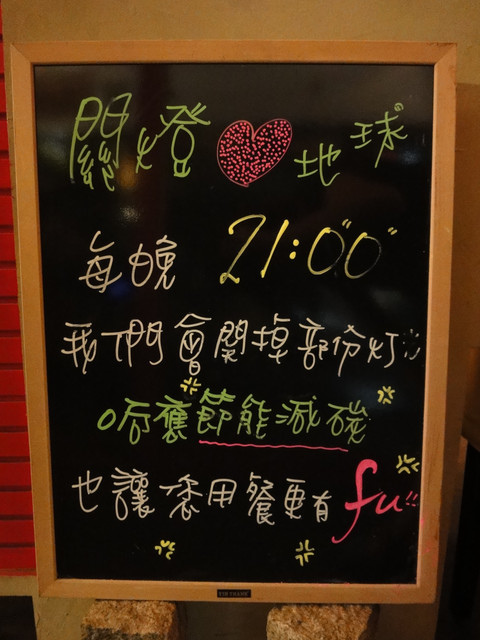 關燈地球
每晚 21:00
我們會關掉部份灯
响應節能減碳
也讓您用餐更有fu